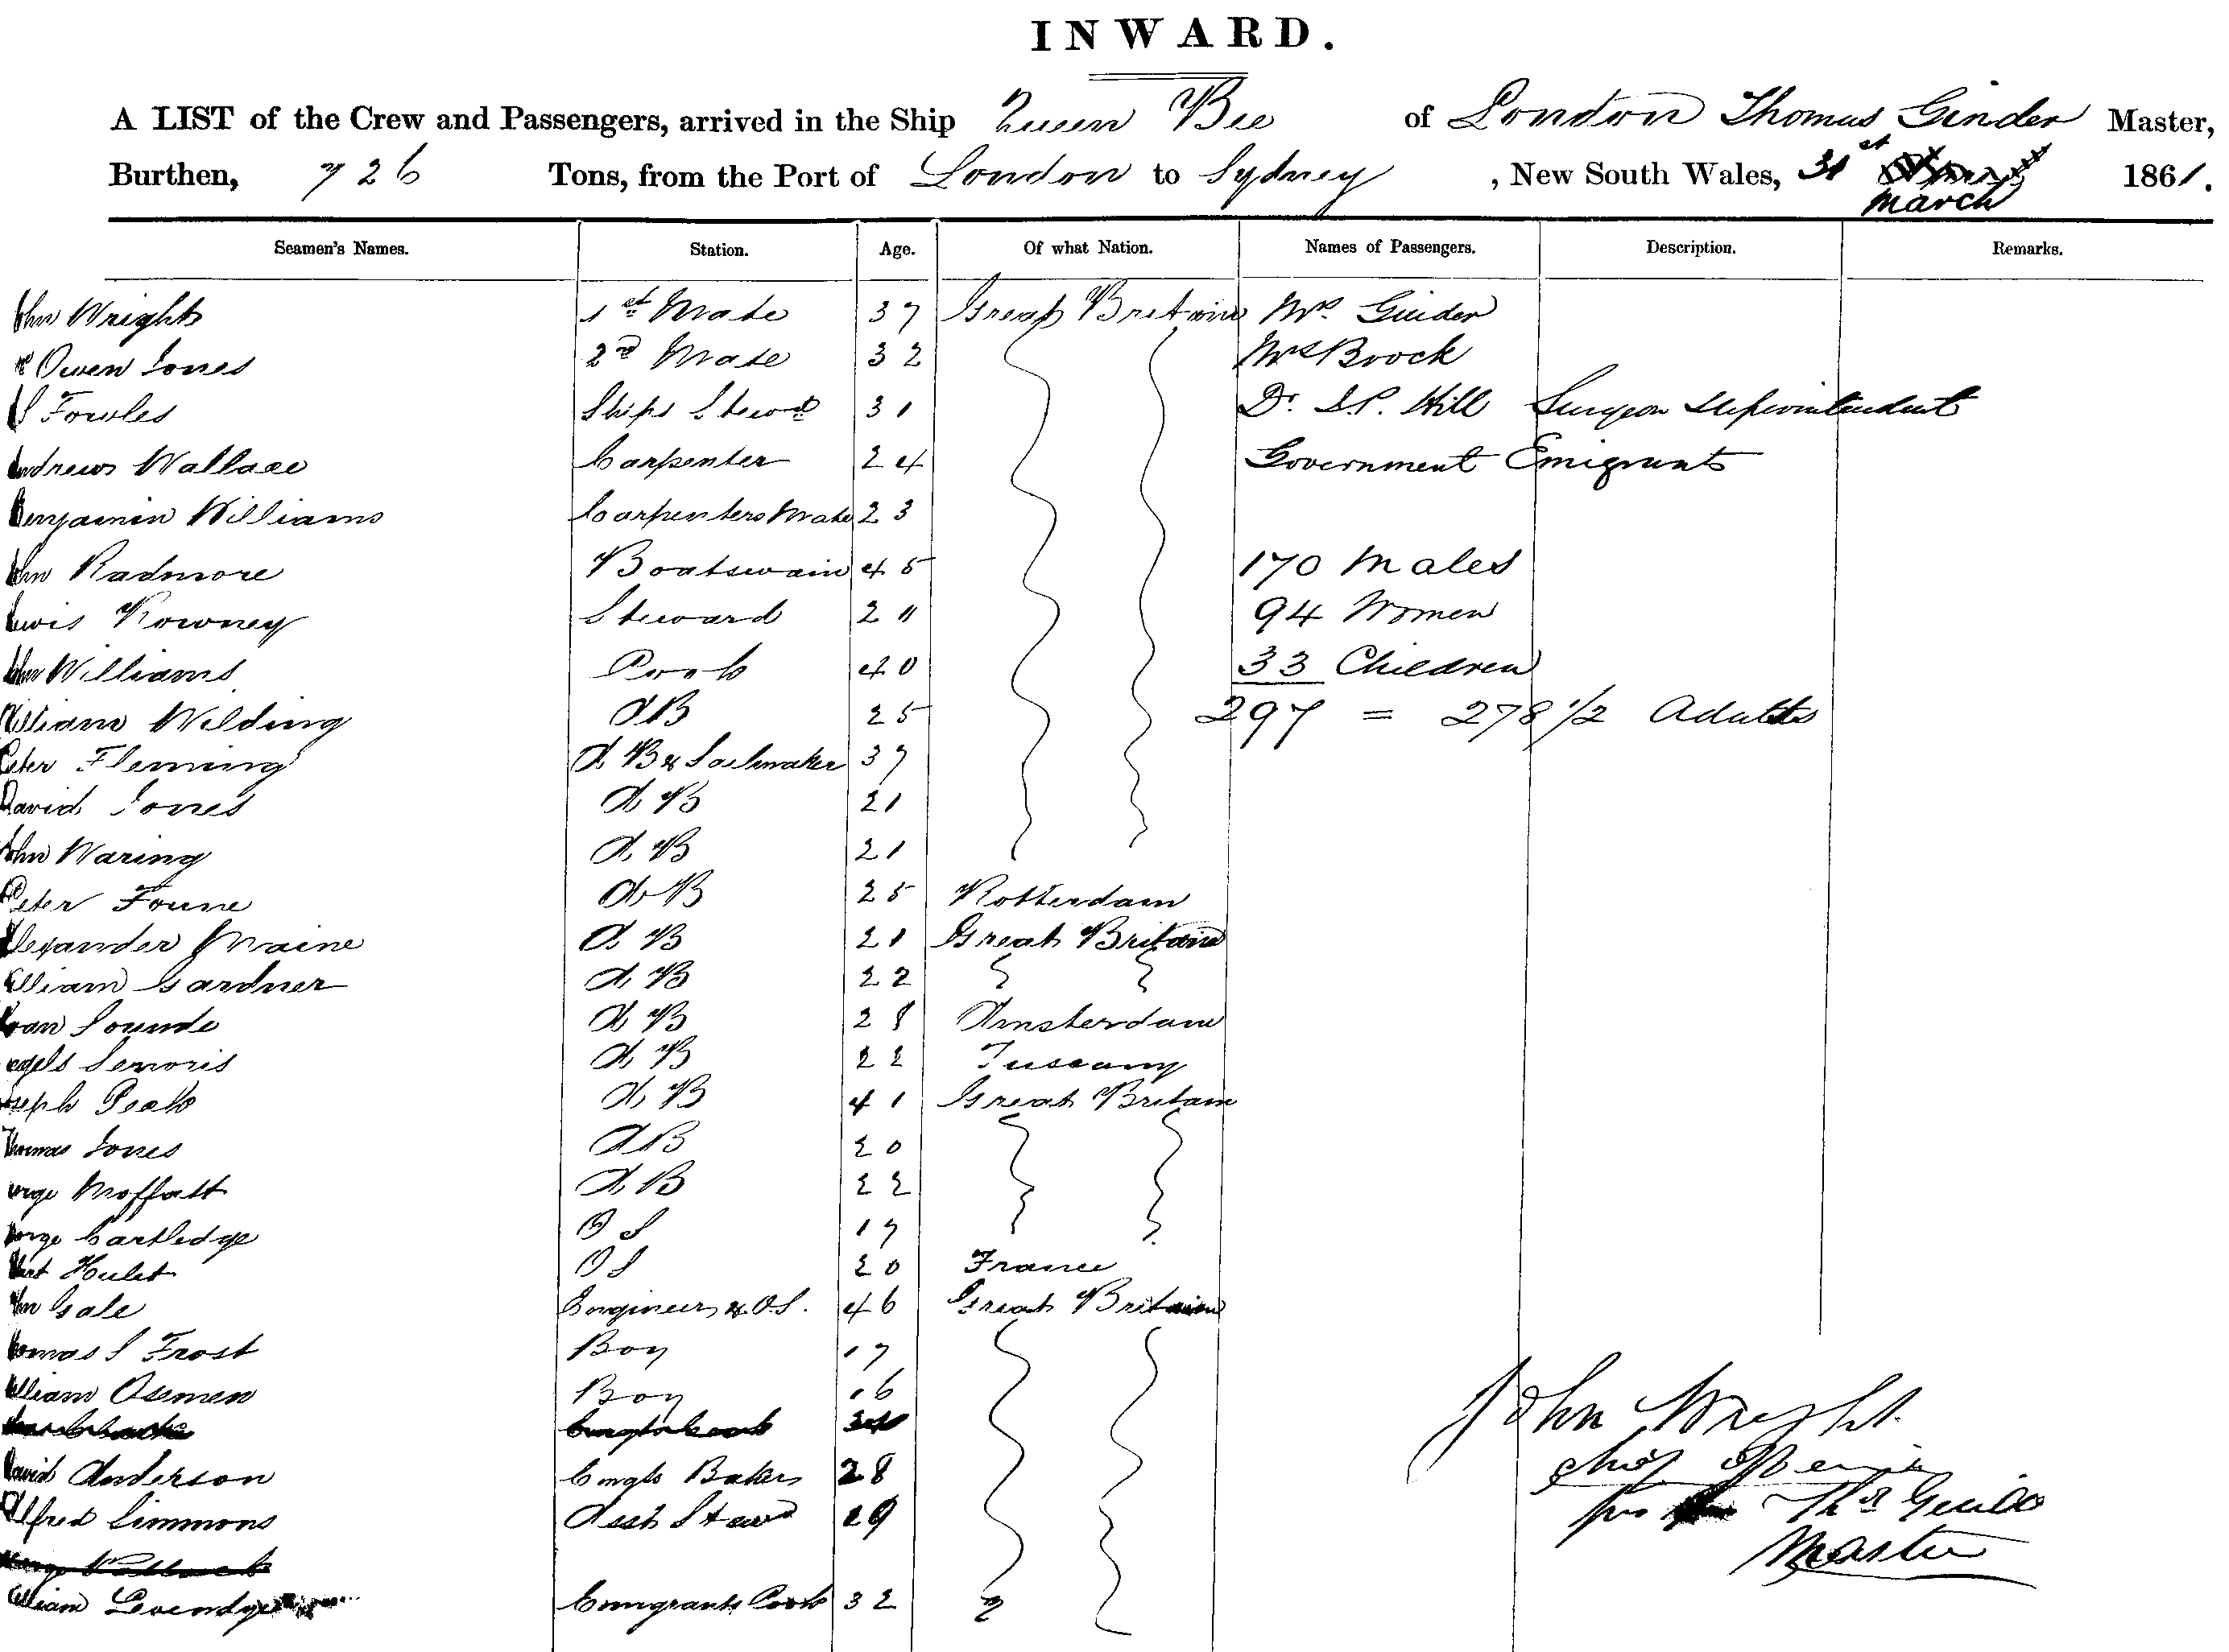 INWARD.
A LIST of the Crew and Passengers, arrived in the Ship Queen Bee of London Thomas Ginder Master,
Burthen, 726 Tons, from the Port of London to Sydney, New South Wales, 31st March 1861.
Seamen's Names. Station. Age. Of what Nation. Names of Passengers. Description. Remarks.
John Wright 1st Mate 37 Great Britain Mrs. Ginder
Owen Jones 2nd Mate 32 Mrs Brock
Fowles Ships Stewd 31 Dr. S.P. Hill Surgeon Superintendent
Andrews Wallace Carpenter 24 Government Emigrants
Benjamin Williams Carpenters Mate 23
John Radmore Boatswain 45 170 Males
Lewis Rowney Steward 21 94 Women
John Williams Cook 40 33 Children
William Wilding AB 25 297 = 278 1/2 Adults
Peter Fleming A B & Sailmaker 37
David Jones A B 21
John Waring A B 21
Peter Foune A B 25 Rotterdam
Alexander Maine A B 21 Great Britain
William Gardner A B 22
A B 28 Amsterdam
A B 22 Tuscany
Joseph Peak A B 41 Great Britain
Thomas Jones AB 20
George Moffatt A B 22
George Cartledge O S 17
Hulet O S 20 France
John Gale Engineer & O.S. 46 Great Britain
Thomas J Frost Boy 17
William Osemen Boy 16
David Anderson Emgts Baker 28
Alfred Simmons Asst Stewd 19
William Emigrants Cook 32
John Wright
Chief Officer
pro Thos Ginder
Master